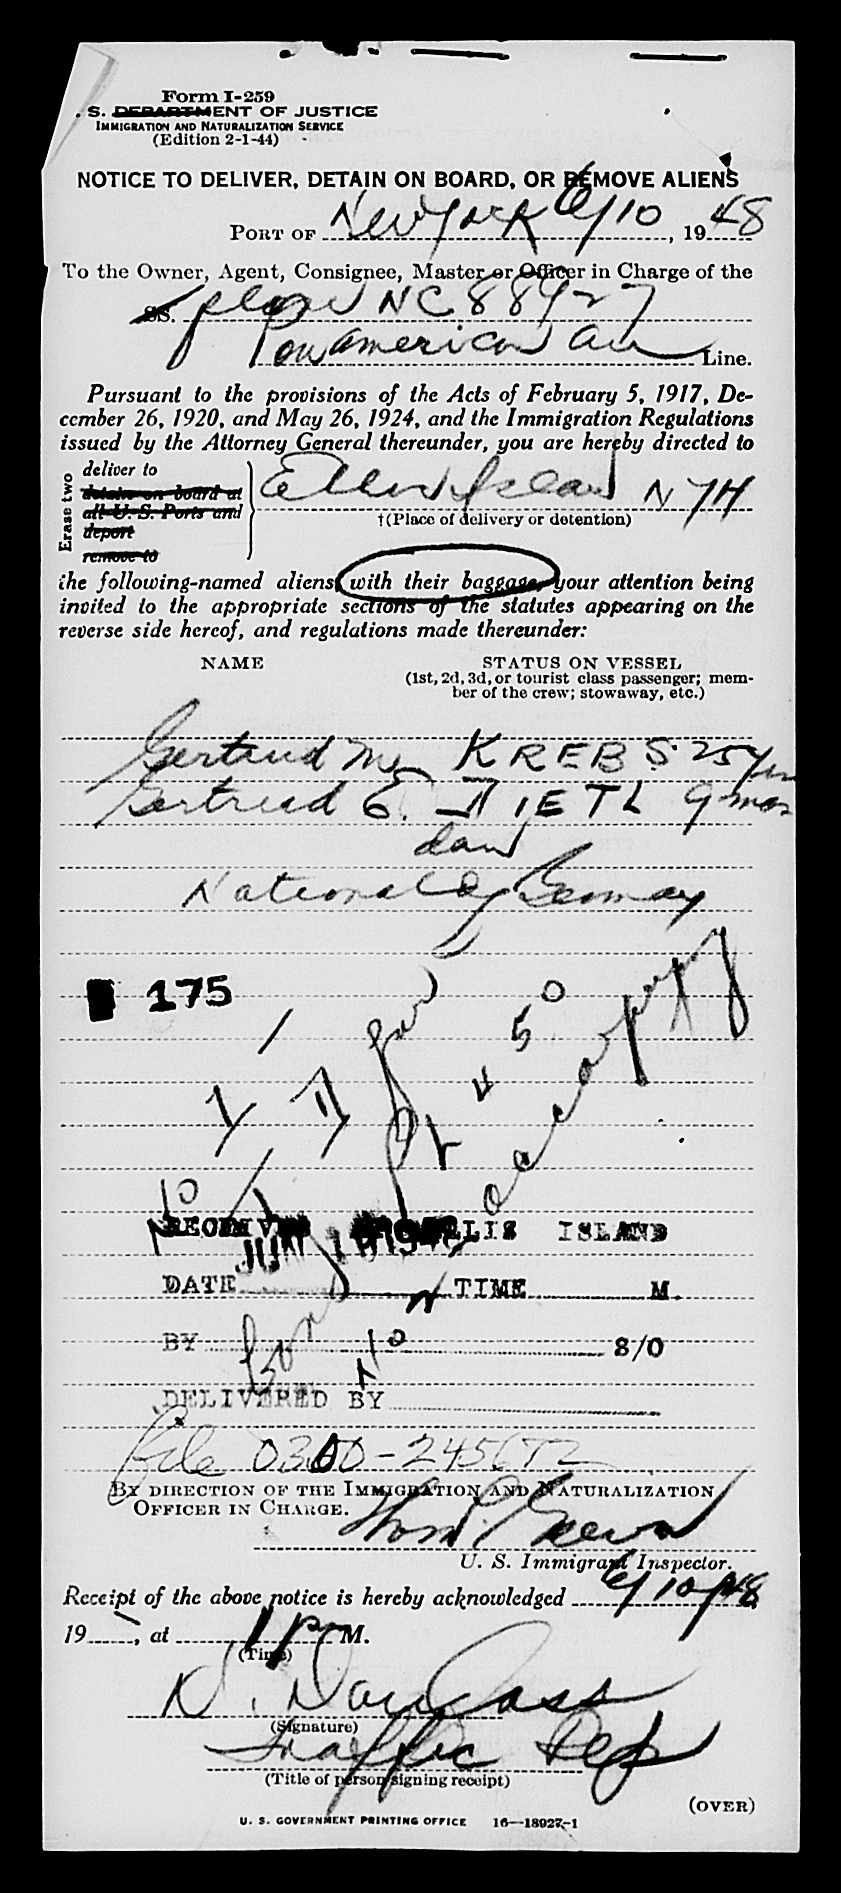 Form I-259
. S. DEPARTMENT OF JUSTICE
IMMIGRATION AND NATURALIZATION SERVICE
(Edition 2-1-44)
NOTICE TO DELIVER, DETAIN ON BOARD, OR REMOVE ALIENS
PORT OF New York 6/10, 1948
To the Owner, Agent, Consignee, Master or Officer in Charge of the
SS. plane NC 88927
Panamerican Air Line.
Pursuant to the provisions of the Acts of February 5, 1917, De-
cember 26, 1920, and May 26, 1924, and the Immigration Regulations
issued by the Attorney General thereunder, you are hereby directed to
Erase two
deliver to
detain on board at
all U. S. Ports and
deport
remove to
Ellis Island NYH
†(Place of delivery or detention)
the following-named aliens, with their baggage, your attention being
invited to the appropriate sections of the statutes appearing on the
reverse side hereof, and regulations made thereunder:
NAME STATUS ON VESSEL
(1st, 2d, 3d, or tourist class passenger; mem-
ber of the crew; stowaway, etc.)
Gertrud M. KREBS 25 yrs
Gertrud E. DIETL 9 mos
dau
Nationality Germany
175
RECEIVED ELLIS ISLAND
DATE TIME M.
BY S/O
DELIVERED BY
File 0300-
BY DIRECTION OF THE IMMIGRATION AND NATURALIZATION
OFFICER IN CHARGE.
U. S. Immigrant Inspector.
Receipt of the above notice is hereby acknowledged 6/10/48
19, at 1 P M.
(Time)
N. Douglass
(Signature)
Traffic Rep
(Title of person signing receipt)
(OVER)
U. S. GOVERNMENT PRINTING OFFICE 16—18927-1